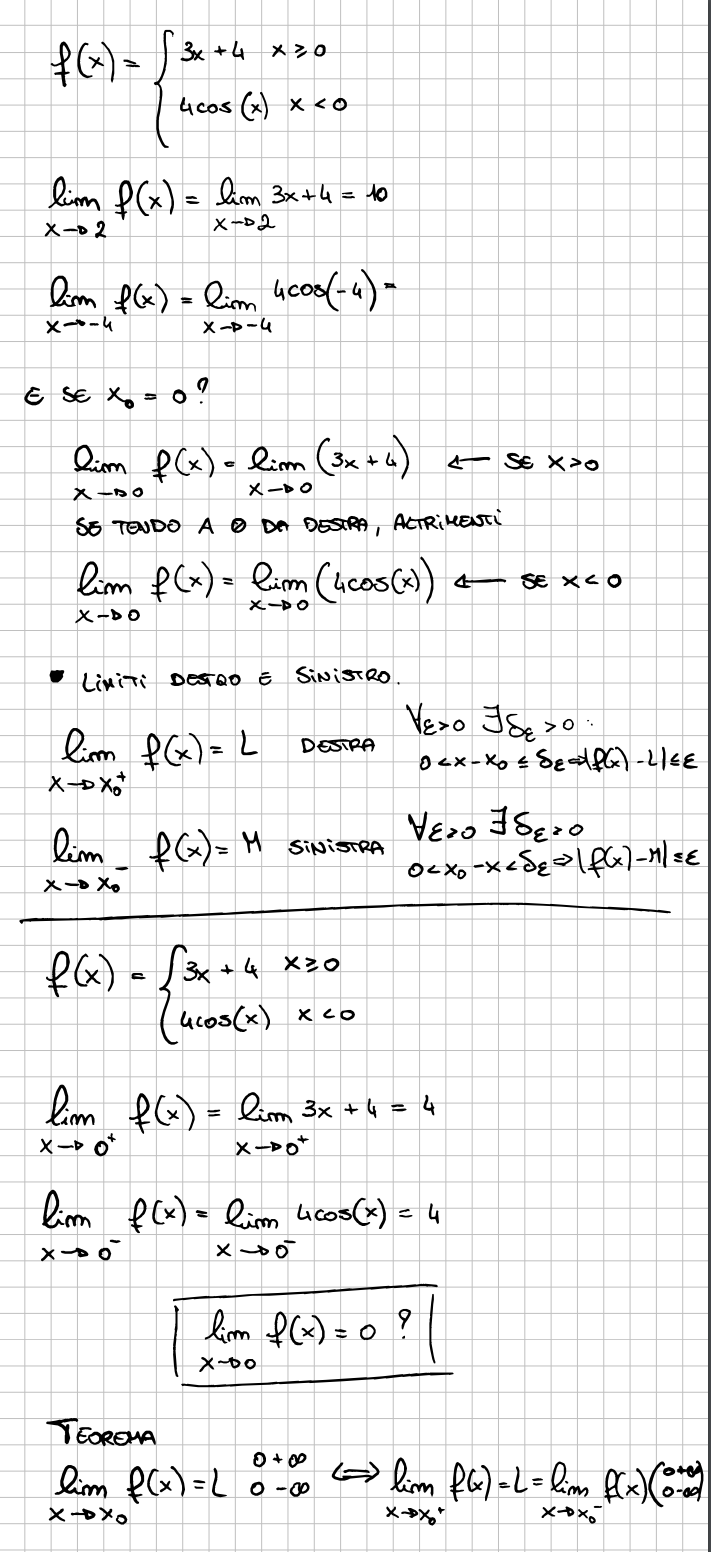 f(x) = { 3x + 4 x ≥ 0
4cos(x) x < 0
lim x→2 f(x) = lim x→2 3x + 4 = 10
lim x→-4 f(x) = lim x→-4 4cos(-4) =
E SE x₀ = 0?
lim x→0 f(x) = lim x→0 (3x + 4) ← SE x>0
SE TENDO A 0 DA DESTRA, ALTRIMENTI
lim x→0 f(x) = lim x→0 (4cos(x)) ← SE x<0
• LIMITI DESTRO E SINISTRO.
lim x→x₀⁺ f(x) = L DESTRA ∀ε>0 ∃δε>0 :
0<x-x₀≤δε⇒|f(x)-L|≤ε
lim x→x₀⁻ f(x) = M SINISTRA ∀ε>0 ∃δε>0
0<x₀-x<δε⇒|f(x)-M|≤ε
f(x) = { 3x + 4 x≥0
4cos(x) x<0
lim x→0⁺ f(x) = lim x→0⁺ 3x + 4 = 4
lim x→0⁻ f(x) = lim x→0⁻ 4cos(x) = 4
lim x→0 f(x) = 0 ?
TEOREMA
lim x→x₀ f(x) = L O +∞ O -∞ ⇔ lim x→x₀⁺ f(x) = L = lim x→x₀⁻ f(x) (O +∞ O -∞)